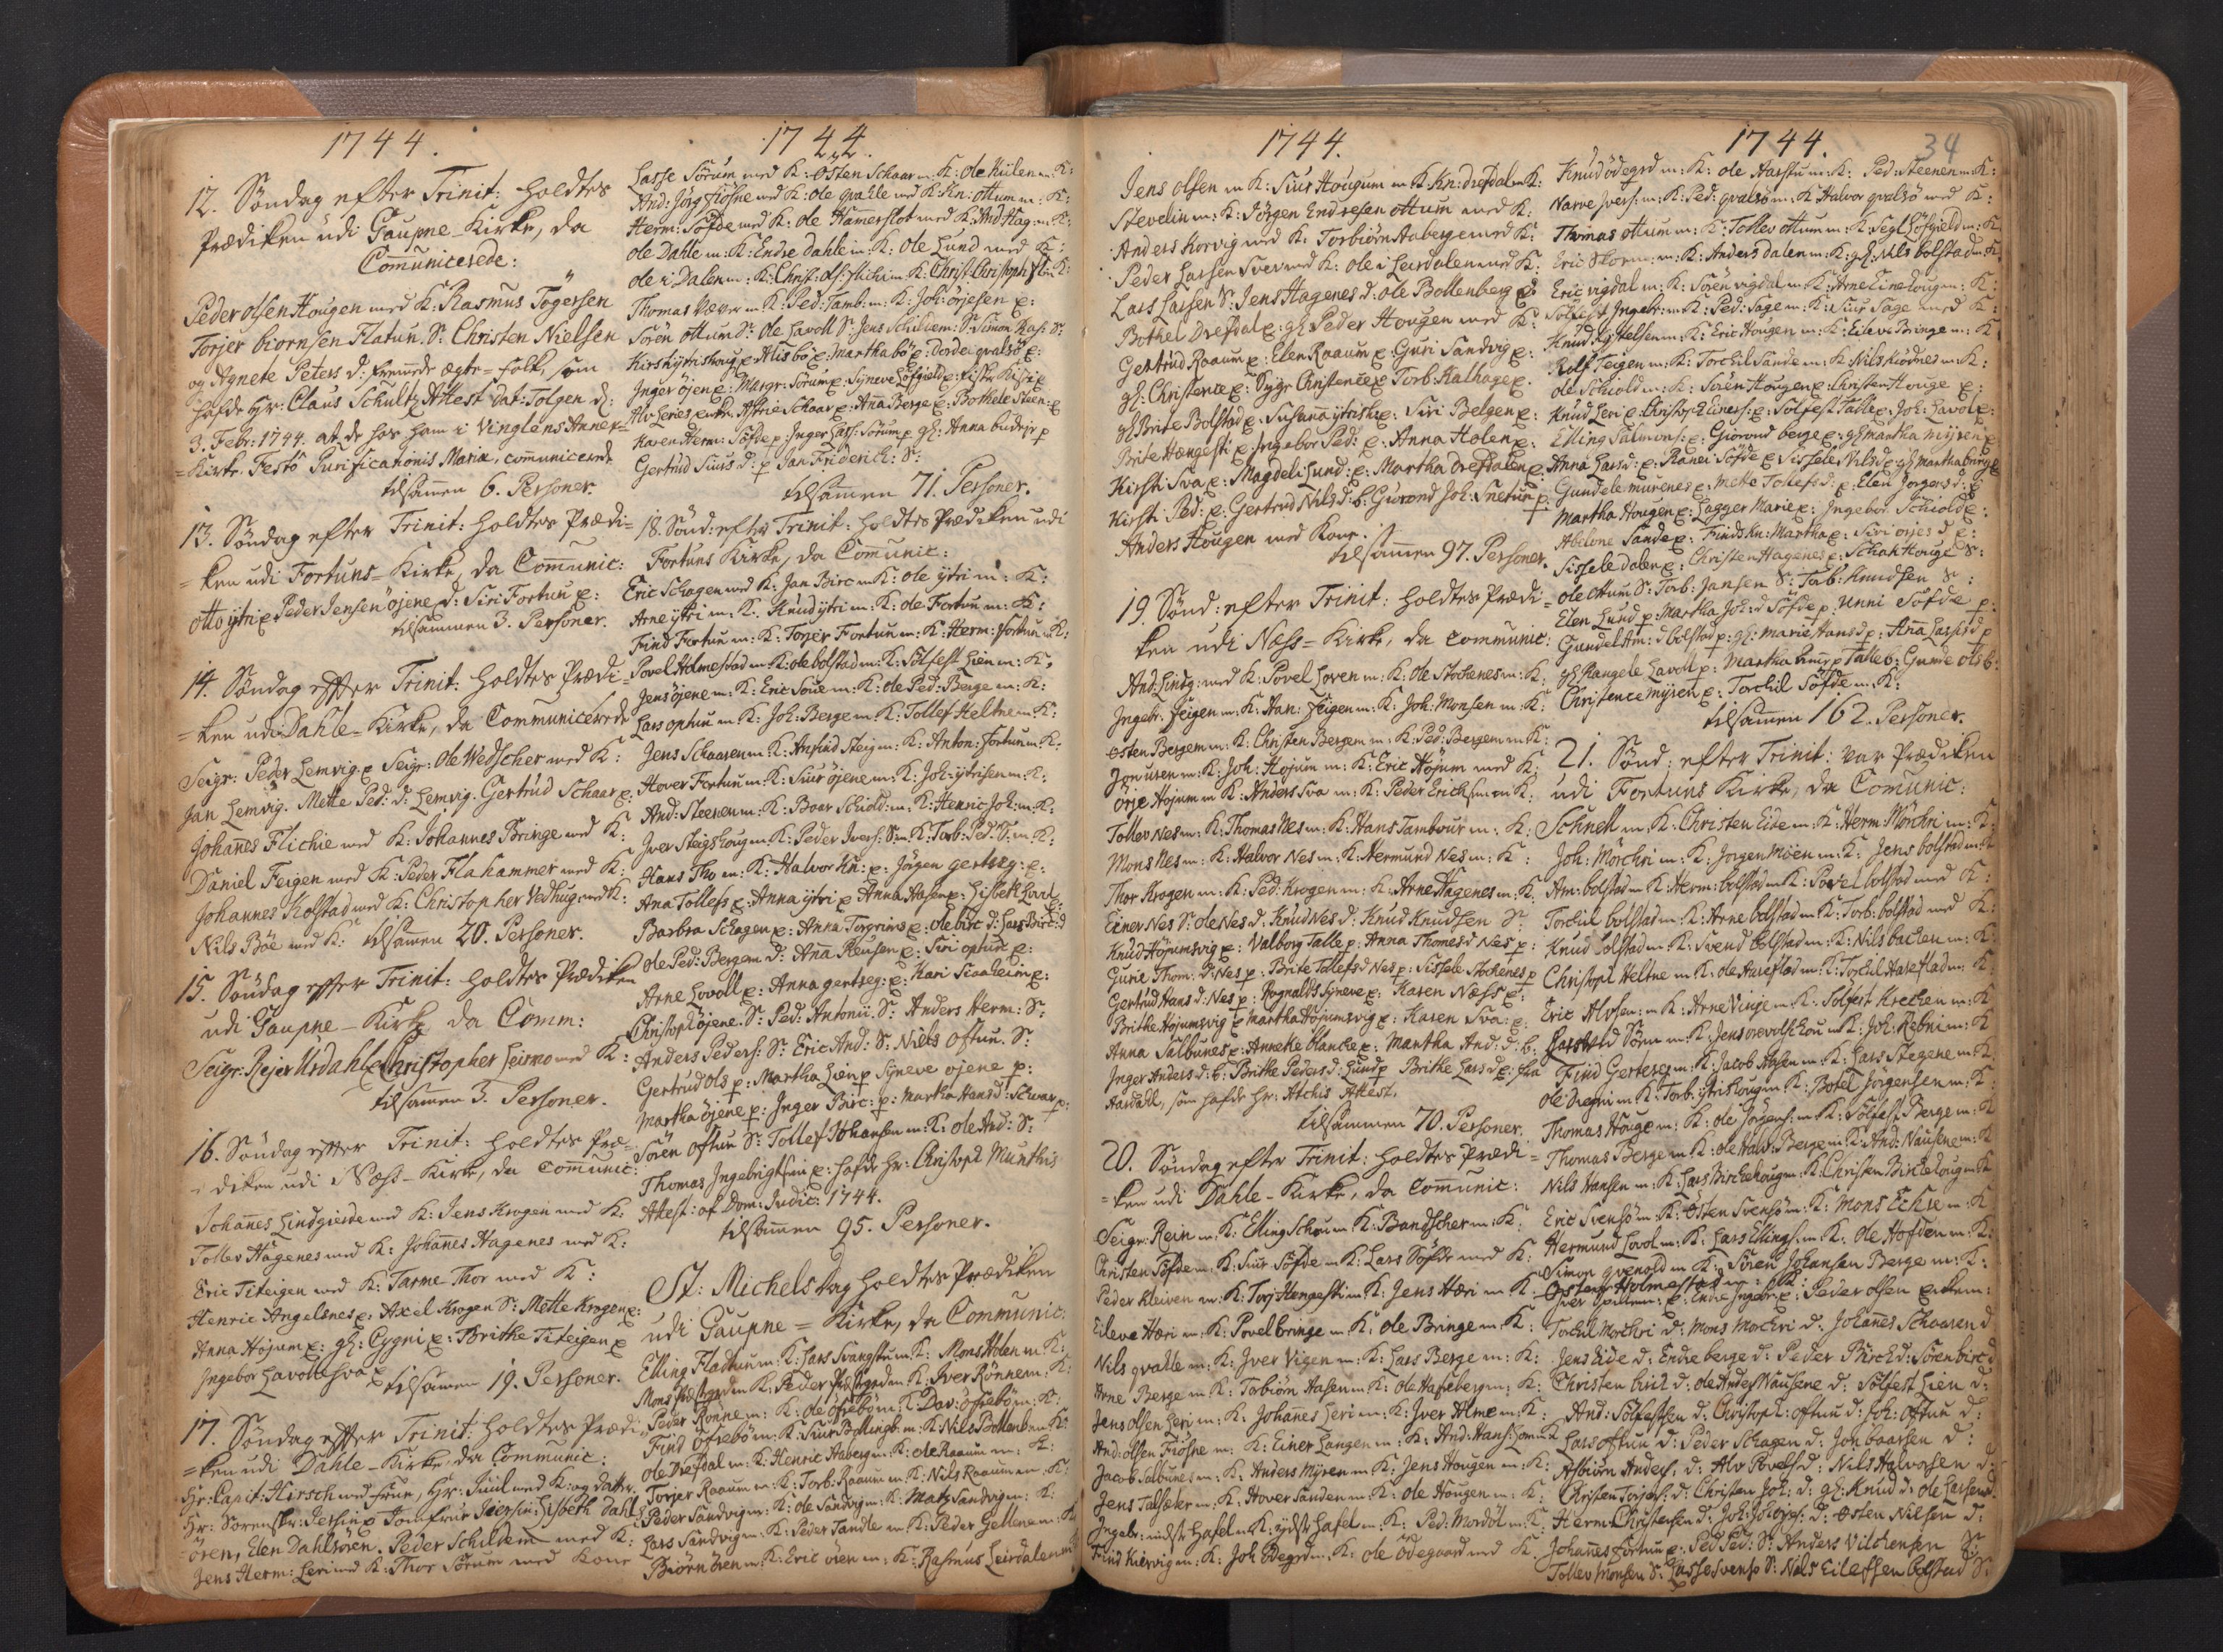 1744.
12. Søndag efter Trinit: holdtes
Prædiken udi Gaupne-Kirke, da
Com̄unicerede:
Peder olsen Hougen med K: Rasmus Tøgersen
Torjer biornsen Flatun. S: Christen Nielsen
og Agnete Peters d: fremede ægte=folk, som
hafde Hr: Claus Schultz Attest dat: Tolgen d:
3. Febr: 1744. at de hos ham i Vinglens Annex=
=Kirke Festo Purificationis Mariæ, com̄unicerede
tilsam̄en 6. Personer.
13. Søndag efter Trinit: holdtes Prædi=
=ken udi Fortuns=Kirke, da Com̄unic:
otto ytri Peder Jensen øjene d: Siri Fortun
tilsam̄en 3. Personer.
14. Søndag efter Trinit: holdtes Prædi=
=ken udi Dahle=Kirke, da Communicerede
Seigr: Peder Lemvig. Seigr: Ole Wedscher med K:
Jan Lemvig. Mette Ped: d: Lemvig. Gertrud Schaar
Johan̄es Flichie med K: Johannes Bringe med K:
Daniel Feigen med K: Peder Flahammer med K:
Johannes Kolstad med K: Christopher Vedhug med K:
Nils Bøe med K: tilsam̄en 20. Personer.
15. Søndag efter Trinit: holdtes Prædiken
udi Gaupne-Kirke da Comm:
Seigr: Rejer Urdahl Christopher Heirmo med K:
tilsam̄en 3. Personer.
16. Søndag efter Trinit: holdtes Præ=
=diken udi Næss-Kirke, da Com̄unic:
Johan̄es Lindgierde med K: Jens Krogen med K:
Tollev Hagenes med K: Johan̄es Hagenes med K:
Eric Titeigen med K: Tarme Thor med K:
Henric Angelsnes: Axel Krogen S: Mette Krogen
Anna Højum: gl: Cygni: Brithe Titeigen
Ingebor Lavolle tilsam̄en 19. Personer.
17. Søndag efter Trinit: holdtes Prædi
=ken udi Dahle-Kirke da Communic:
Hr: Capit: Hirsch med frue, Hr: Juul med K: og datter
Hr: Sorenskr: Jersin Jomfrue Jersin: Lisbeth Dahls
øren, Elen Dahlsøren. Peder Schildem med K:
Jens Herm: Leri med K: Thor Sørum med Kone
1744.
Lasse Sørum med K: Østen Schaar m: K: Ole Kulen m: K:
And: Jørg Fiøsne med K: Ole qvahle med K: Kn: ottum m: K:
Herm: Søfde med K: ole Ham̄erslob med K: And Hag: m: K:
Ole Dahle m: K: Endre Dahle m: K: Ole Lund med K:
ole i Dalen m: K: Christ: Ols: m K: Christ: Christoph: m: K:
Thomas Væver m: K: Ped: Tamb: m: K: Joh: ørjesen
Sørn ottum d: ole Lavoll S: Jens Schildem: S: Simon Ras: S:
Kirsti ytrishoug Alis bø Martha bø: Dorde qvalsø
Inger øjen: Margr: Sørum: Synneve Løfgield
Gertrud Siurs d: Jan Friderich: S:
tilsam̄en 71. Personer.
18. Sønd: efter Trinit: holdtes Prædiken udi
Fortuns Kirke, da Com̄unic:
Eric Schagen med K: Jan Birc m K: ole ytri m: K:
Arne ytri m: K: Knud ytri m: K: ole Fortun m: K:
Find Fortun m: K: Torjer Fortun m: K: Herm: Fortun m: K:
Povel Holmestad m: K: ole bolstad m: K: Sølfest Lien m: K:
Jens øjene m: K: Eric Soue m: K: ole Ped: Berge m: K:
Lars optun m K: Joh: Berge m: K: Tollef Heltne m: K:
Jens Schaaren m: K: Anfind Steig m: K: Anton: Fortun m: K:
Hover Fortun m: K: Siur øjene m: K: Joh: ytrisen m: K:
And: Steenen m: K: Boar Schiold: m: K: Henric Joh: m: K:
Iver Steigshoug m: K: Peder Ivers: m: K: Torb: Ped: m: K:
Hans Tho m: K: Halvor Kn: Jørgen gertseg:
Ana Tollefs Anna ytri Anna Aasen Lisbeth Lovol
Barbra Schagen: Anna Torgrims: ole birc d: Lars Birc: d
ole Ped: Bergem D: Ana Reusen: Siri optun
Arne Lovoll: Anna gertseg: Kari Siaaheim:
Christoph øjene. S: Ped: Antonii: S: Anders Herm: S:
Anders Peders: S: Eric And: S: Niels oftun. S:
Gertrud ols p: Martha Lien Synneve øjene p:
Martha øjene: Inger Birc: Martha Hans d: Schaar p:
Søren oftun S: Tollef Johansen m: K: Ole And: S:
Thomas Ingebrigtsen: hafde Hr: Christoph Munthis
Attest: af Dom: Judic: 1744.
tilsam̄en 95. Personer.
St: Michelsdag holdtes Prædiken
udi Gaupne=Kirke, da Communic:
Elling Fladtun m: K: Lars Svangstu m: K: Mons Holen m: K:
Mons præstgrd m K: Peder præstgrd m K: Iver Rønne m: K:
Peder Rønne m: K: ole ofrebø m K: Dav: ofrebø m: K:
Find ofrebø m: K: Siur Bollingb: m: K: Nils Bollenb: m: K:
ole Drefdal m: K: Henric Aaberg m: K: ole Raaum m: K:
Torjer Raaum m: K: Torb: Raaum m: K: Nils Raaum m: K:
Peder Sandvig m: K: ole Sandvig m: K: Matz Sandvig m: K:
Lars Sandvig m: K: Peder Tandle m: K: Peder Gellene m: K:
Biørn øren m: K: Eric øren m: K: Rasmus Leirdalen m:
1744.
Jens olsen m K: Siur Hougum m K: Kn: Drefdal m K:
Stevelin m: K: Jørgen Endresen ottum med K:
Anders Korvig med K: Torbiørn Aaberge med K:
Peder Larsen Sver med K: ole i Leirdalen med K:
Lars Larsen S: Jens Hagenes d: ole Bollenberg d:
Bothel Drefdal: gl: Peder Hougen med K:
Gertrud Raaum: Elen Raaum: Guri Sandvig:
gl: Christence: Sygr Christence Torb: Kalhage
gl Brite Bolstad: Susan̄a ytrisk: Siri Belgen:
Brite Hængesti Ingebor Ped: Anna Holen:
Kirsti Sva: Magdeli Lund: Martha Drefdalen:
Kirsti Ped: Gertrud Nils d: b: Gurond Joh: Snetun
Anders Hougen med Kone.
tilsam̄en 97. Personer.
19. Sønd: efter Trinit: holdtes Prædi=
ken udi Næss=Kirke, da communic:
And: Lindg: med K: Povel Loven m: K: Ole Stockenes m: K:
Ingebr: Feigen m: K: Han: Feigen m: K: Joh: Monsen m: K:
østen Bergem m: K: Christen Bergem m: K: Ped: Bergem m K:
Jon uren m: K: Joh: Højum m: K: Eric Højum med K:
ørje Højum m K: Anders Sva m: K: Peder Erichsen m K:
Tollev Nes m: K: Thomas Nes m: K: Hans Tambour m: K:
Mons Nes m: K: Halvor Nes m: K: Hermund Nes m: K:
Thor Krogen m: K: Ped: Krogen m: K: Arne Hagenes m: K:
Einer Nes S: ole Nes d: Knud Nes d: Knud Knudsen S:
Knud Højumsvig: Valborg Talle: Anna Thomes d Nes
Gurie Thom: d: Nes: Brite Tollefs d Nes: Sissele Stockenes
Gertrud Hans d: Nes: Rognalds Synneve: Karen Næss
Brithe Højumsvig Martha Højumsvig: Karen Sva:
Anna Salbunes: Anneke blancke: Martha And: d: b:
Inger Anders d: b: Brithe Peders d: Lund Brithe Lars d: fra
Aardahl, som hafde Hr: Atchis Attest.
tilsammen 70. Personer.
20. Søndag efter Trinit: holdtes Prædi=
=ken udi Dahle-Kirke, da Com̄unic:
Seigr: Rein m: K: Elling Schou m: K: Bandscher m: K:
Christen Søfde m: K: Siur Søfde m: K: Lars Søfde med K:
Peder Kleiven m: K: Torj Hengesti m K: Jens Hæri m K:
Eileve Hæri m: K: Povel bringe m: K: ole Bringe m: K:
Nils qvalle m: K: Iver Vigen m: K: Lars Berge m: K:
Arne Berge m: K: Torbiørn Hasen m: K: ole Hasleberg m: K:
Jens olsen Leri m: K: Johan̄es Leri m: K: Iver Alme m: K:
And: olsen Fiøsne m: K: Einer Langen m: K: And: Hans:
Jacob Salbunes m: K: Anders Myren m: K: Jens Hougen m: K:
Jens Talsæter m: K: Hover Sanden m: K: ole Hougen m: K:
Ingebr: indste Hafsl m K: ydste Hafsl m: K: Ped: Mordøl m: K:
Find Kiervig m: K: Joh Ødegrd m: K: ole ødegaard med K.
1744.
34
Knud ødegrd m: K: ole Aastu m: K: Ped: Steenen m K:
Narve Ivers: m: K: Ped: qvalsø m: K: Halvor qvalsø med K:
Thomas ottum m: K: Tollev ottum m: K: Segl Løfgield m: K:
Eric Skorn: m: K: Anders Dalen m: K: gl: Nils bolstad m: K:
Eric vigdal m: K: Søren vigdal m: K: Arne Linehoug m: K:
Sølfest Ingebr: m K: Ped: Sage m: K: Siur Sage med K:
K: Eric Hougen m: K: Eileve Bringe m: K:
Rolf Teigen m: K: Torchil Sande m: K: Nils Kiødnes m: K:
ole Schiold m: K: Siren Hougen: Christen Houge
Knud Leri: Christoph Einers: Sølfest Talle: Joh: Lavol:
Elling Salmons: Giørond berge: gl martha mijren
Anna Lars d: Ranei Søfde Sissele Nils d: gl martha berg
Gundele murenes: Mette Tollefs d: Elen Jørgens d:
Martha Hougen: Lagger Marie: Ingebor Schiold:
Abelone Sande: Finds Kn: Martha: Siri orjes d:
Sissele dalen: Christen Hagenes: Schak Houge S:
ole ottum S: Torb: Jansen S: Torb: Knudsen S:
Elen Lund p: Martha Joh: d Søfde p: Unni Søfde p:
Gundel Am: d bolstad p: gl: Marie Hans d: Anna Lars d p
gl Rangele Lavoll: Martha Talle: Gunde ols b:
Christence Mijren: Torchil Søfde m: K:
tilsam̄en 162. Personer.
21. Sønd: efter Trinit: var Prædiken
udi Fortuns Kirke, da Comunic:
Schnell m: K: Christen Eide m: K: Herm: Mørchri m: K:
Joh: Mørchri m: K: Jørgen Moen m: K: Jens bolstad m: K:
Am: bolstad m K: Herm: bolstad m K: Povel bolstad med K:
Torchil bolstad m: K: Arne bolstad m: K: Torb: bolstad med K:
Knud bolstad m: K: Svend bolstad m: K: Nils backen m: K:
Christoph Heltne m: K: ole Harestad m: K: Torchil Harestad m: K:
Eric Alvsen: m: K: Arne Vinje m: K: Sølfest Krechen m: K
Find Gertseg m: K: Jacob Aasen m: K: Lars Stegene m: K:
ole Dregni m: K: Torb: ytrishoug m: K: Botel Jørgensen m: K:
Thomas Houge m: K: ole Jørgens: m: K: Sølfest Berge m: K
Thomas Berge m: K: ole Halv: Berge m: K: And: Nausene m: K
Nils Hansen m: K: Lars Birchehoug m: K: Christen Birchehoug m K
Eric Svensø m: K: Østen Svensø m: K: Mons Eckre m: K
Hermund Lovol m: K: Lars Ellings: m: K: ole Hofden m: K:
Simon qvenold m K: Søren Johansen Berge m: K:
Østen Holmestad m: K:
Peder olsen
Torchil Morchri d: Mons Morchri d: Johan̄es Schaaren d
Jens Eide d: Endre berge d: Peder Birch d: Søren birc d
Christen birch d: ole Anders Nausene d: Sølfest Lien d:
And: Sølfestsen d: Christoph: oftun d: Joh: oftun d:
Lars oftun d: Peder Schagen d: Jon baarsen d:
Asbiørn Anders: d: Alv Povels d: Nils Halvorsen d:
Christen Torjers: d: Christen Joh: d: gl: Knud d: ole Larsen d:
Herm: Christensen d: Joh: Joh: d: Østen Nilsen d:
Johan̄es Fortun: Ped Ped: S: Anders Vilchensen S:
Tollev Monsen S: Lasse Svensø S: Nils Eilefsen bolstad S: